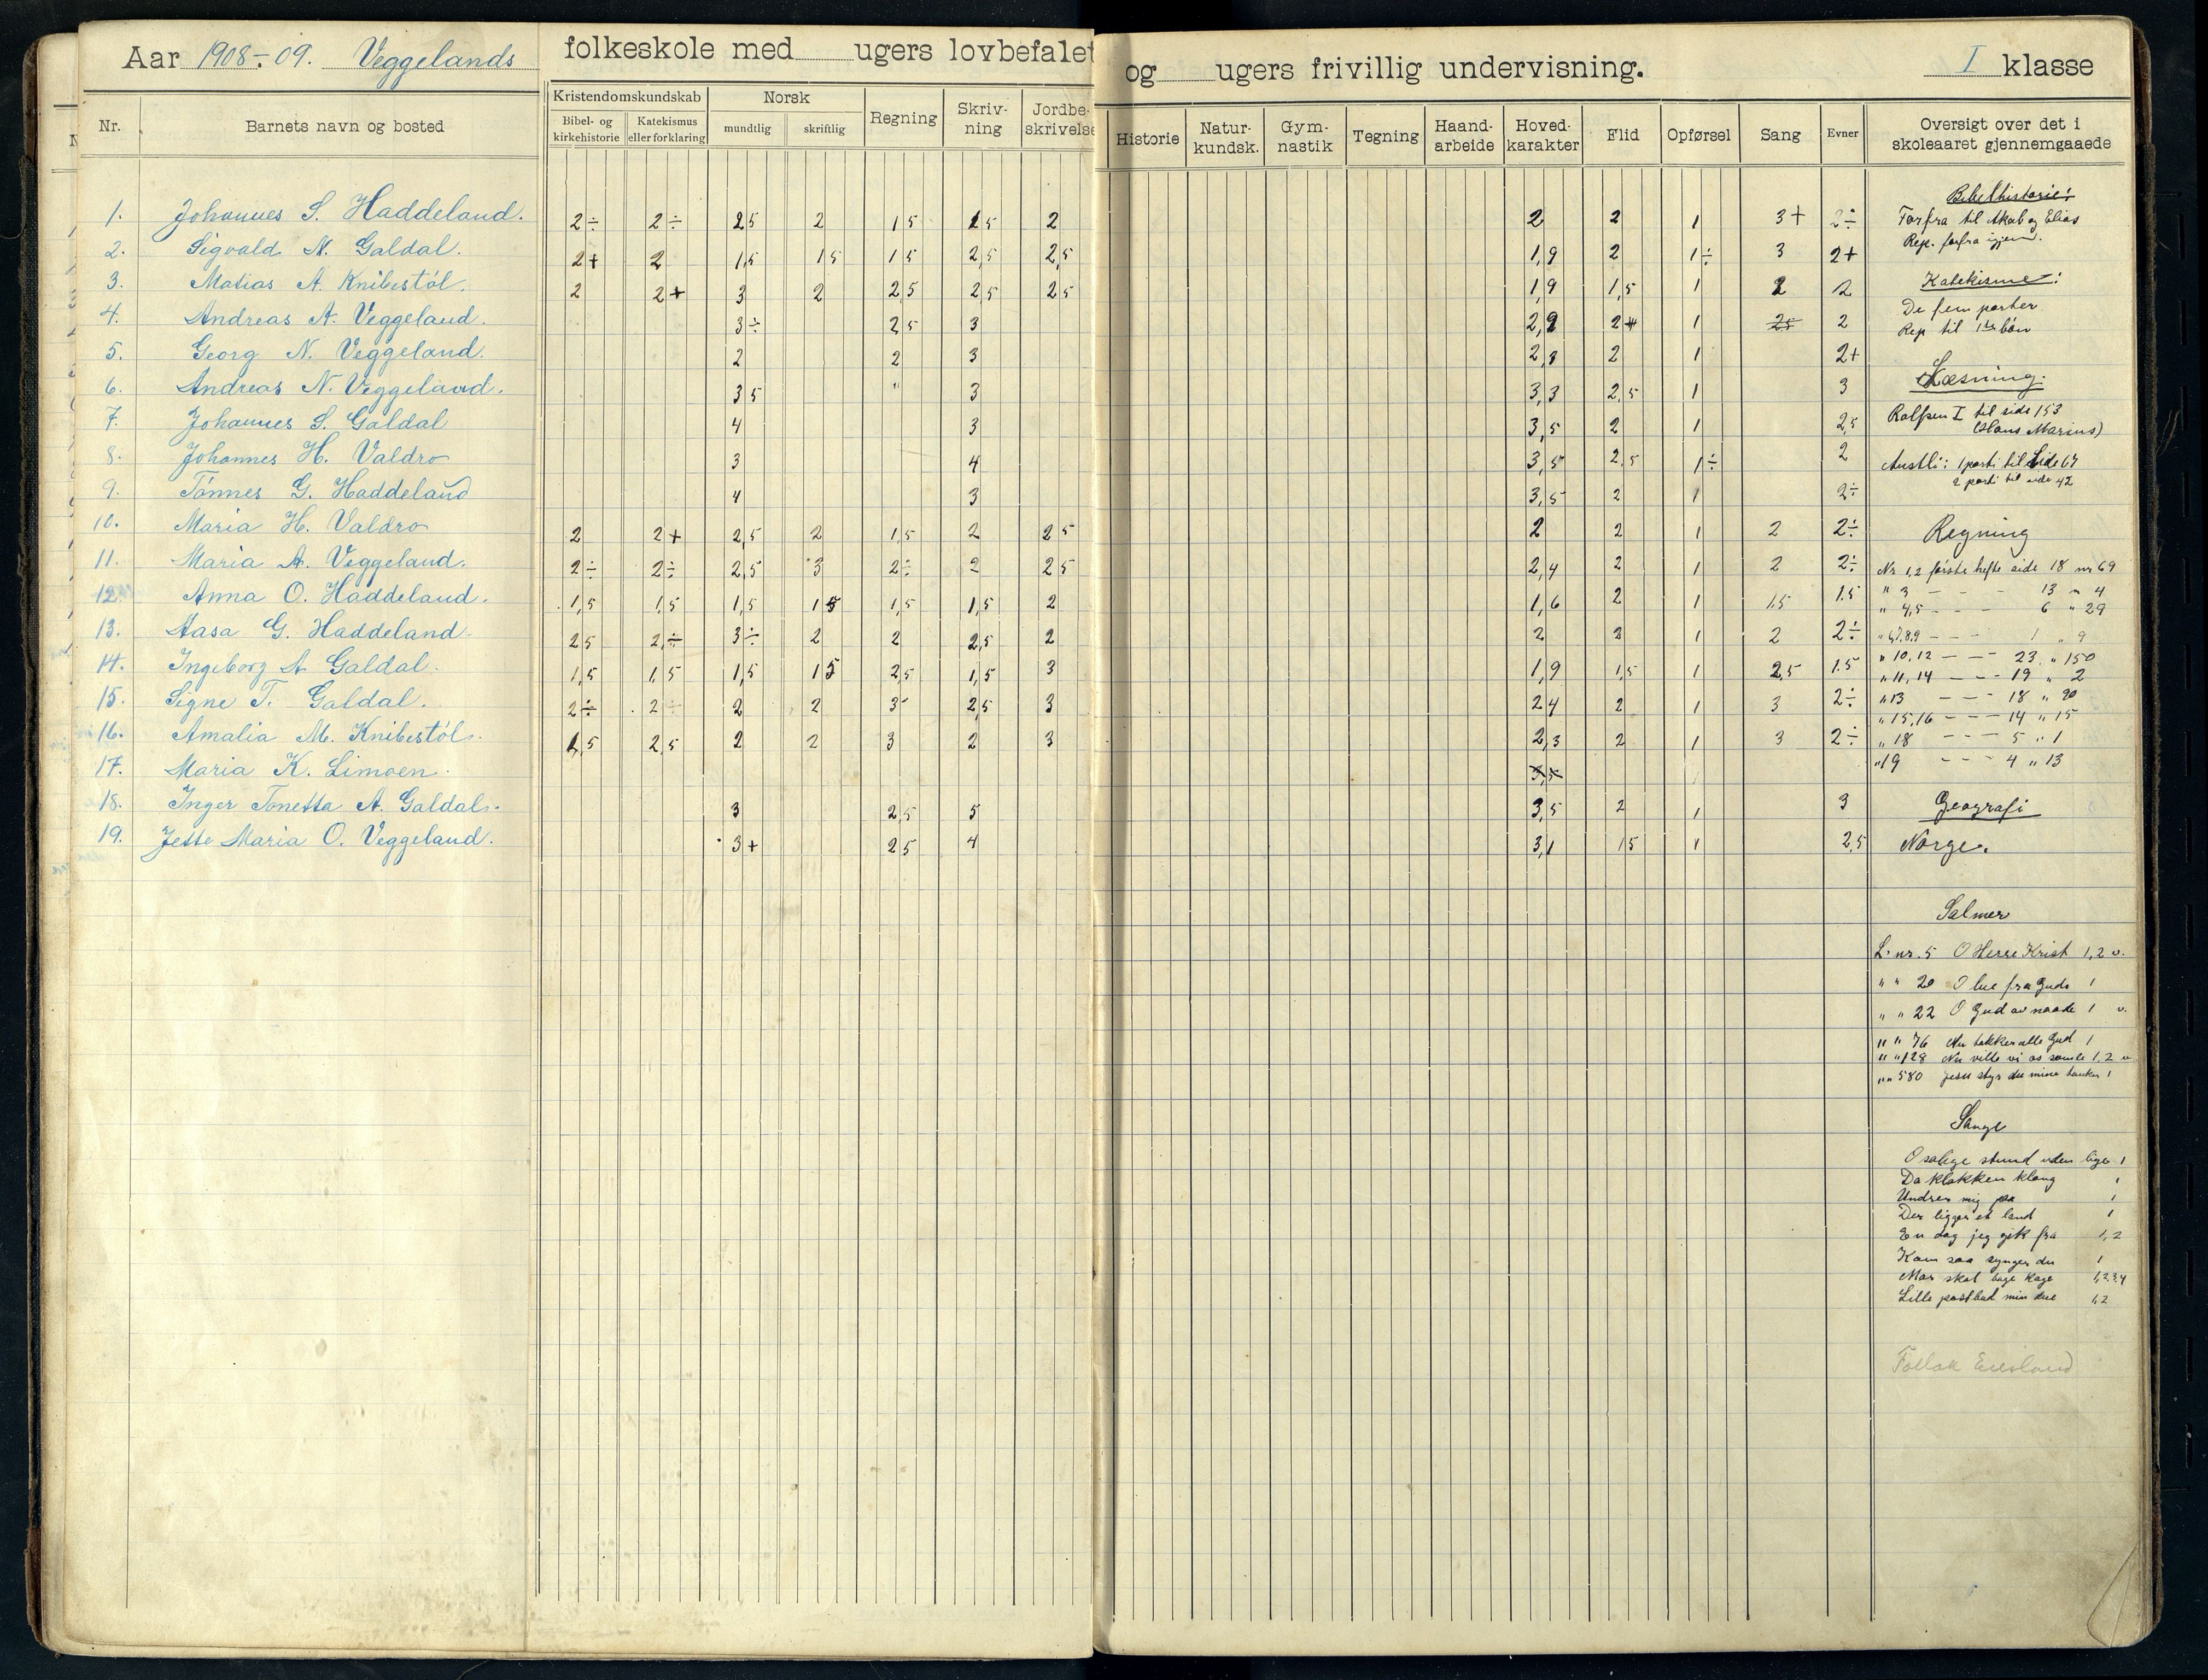 Aar 1908-09. Veggelands folkeskole med ugers lovbefalet og ugers frivillig undervisning. I klasse
Nr. Barnets navn og bosted Kristendomskundskab Norsk Regning Skriv-ning Jordbe-skrivelse Historie Natur-kundsk. Gym-nastik Tegning Haand-arbeide Hoved-karakter Flid Opførsel Sang Evner Oversigt over det i skoleaaret gjennemgaaede
Bibel- og kirkehistorie Katekismus eller forklaring mundtlig skriftlig
1. Johannes S. Haddeland. 2÷ 2÷ 25 2 15 25 2 2 2 1 3+ 2÷
2. Sigvald N. Galdal. 2+ 2 1,5 15 15 2,5 2,5 1,9 2 1÷ 3 2+
3. Matias A. Knibestöl. 2 2+ 3 2 25 25 25 1,9 1,5 1 2 2
4. Andreas A. Veggeland. 3÷ 25 3 2,9 2 1 25 2
5. Georg N. Veggeland. 2 2 3 2,8 2 1 2+
6. Andreas N. Veggeland. 35 " 3 3,3 2,5 1 3
7. Johannes S. Galdal 4 3 3,5 2 1 2,5
8. Johannes H. Valdro 3 4 3,5 2,5 1÷ 2
9. Tönnes G. Haddeland 4 3 3,5 2 1 2÷
10. Maria H. Valdro 2 2+ 2,5 2 1,5 2 25 2 2 1 2 2÷
11. Maria A. Veggeland. 2÷ 2÷ 2,5 3 2÷ 2 25 2,4 2 1 2 2÷
12. Anna O. Haddeland. 1,5 1,5 1,5 15 1,5 1,5 2 1,6 2 1 1,5 1.5
13. Aasa G. Haddeland 25 2,÷ 3÷ 2 2 2,5 2 2 2 1 2 2÷
14. Ingeborg A Galdal. 1,5 1,5 1,5 15 2,5 1,5 3 1,9 1,5 1 2,5 1.5
15. Signe T. Galdal. 2÷ 2÷ 2 2 3 2,5 3 24 2 1 3 2÷
16. Amalia M. Knibestöl. 1,5 2,5 2 2 3 2 3 2,3 2 1 3 2÷
17. Maria K. Limoen. 3,5
18. Inger Tonetta A. Galdal. 3 2,5 5 3,5 2 1 3
19. Jette Maria O. Veggeland. 3+ 25 4 3,1 15 1 2,5
Bibelhistorie:
Forfra til Akab og Elias
Rep. forfra igjen.
Katekisme:
De fem parter
Rep til 1ste bön
Læsning.
Rolfsen I til side 153
(Hans Marius)
Austli: 1 parti til side 67
2 parti til side 42
Regning
Nr 1,2 første hefte side 18 nr 69
" 3 - - - 13 " 4
" 4,5 - - - 6 " 29
" 6,7,8,9 - - - 1 " 9
" 10,12 - - - 23 " 150
" 11,14 - - - 19 " 2
" 13 - - - 18 " 20
" 15,16 - - - 14 " 15
" 18 - - - 5 " 1
" 19 - - - 4 " 13
Geografi
Norge.
Salmer
L. nr. 5 O Herre Krist 1,2 v.
" " 20 O lue fra Guds 1
" " 22 O Gud av naade 1 v.
" " 76 Nu takker alle Gud 1
" " 128 Nu ville vi os samle 1,2 v
" " 580 Jesu styr du mine tanker 1
Sange
O salige stund uden lige 1
Da klokken klang 1
Undres mig paa 1
Der ligger et land 1
En dag jeg gik fra 1,2
Kom saa synger du 1
Mor skal bage kage 1,2,3,4
Lille postbud min due 1,2